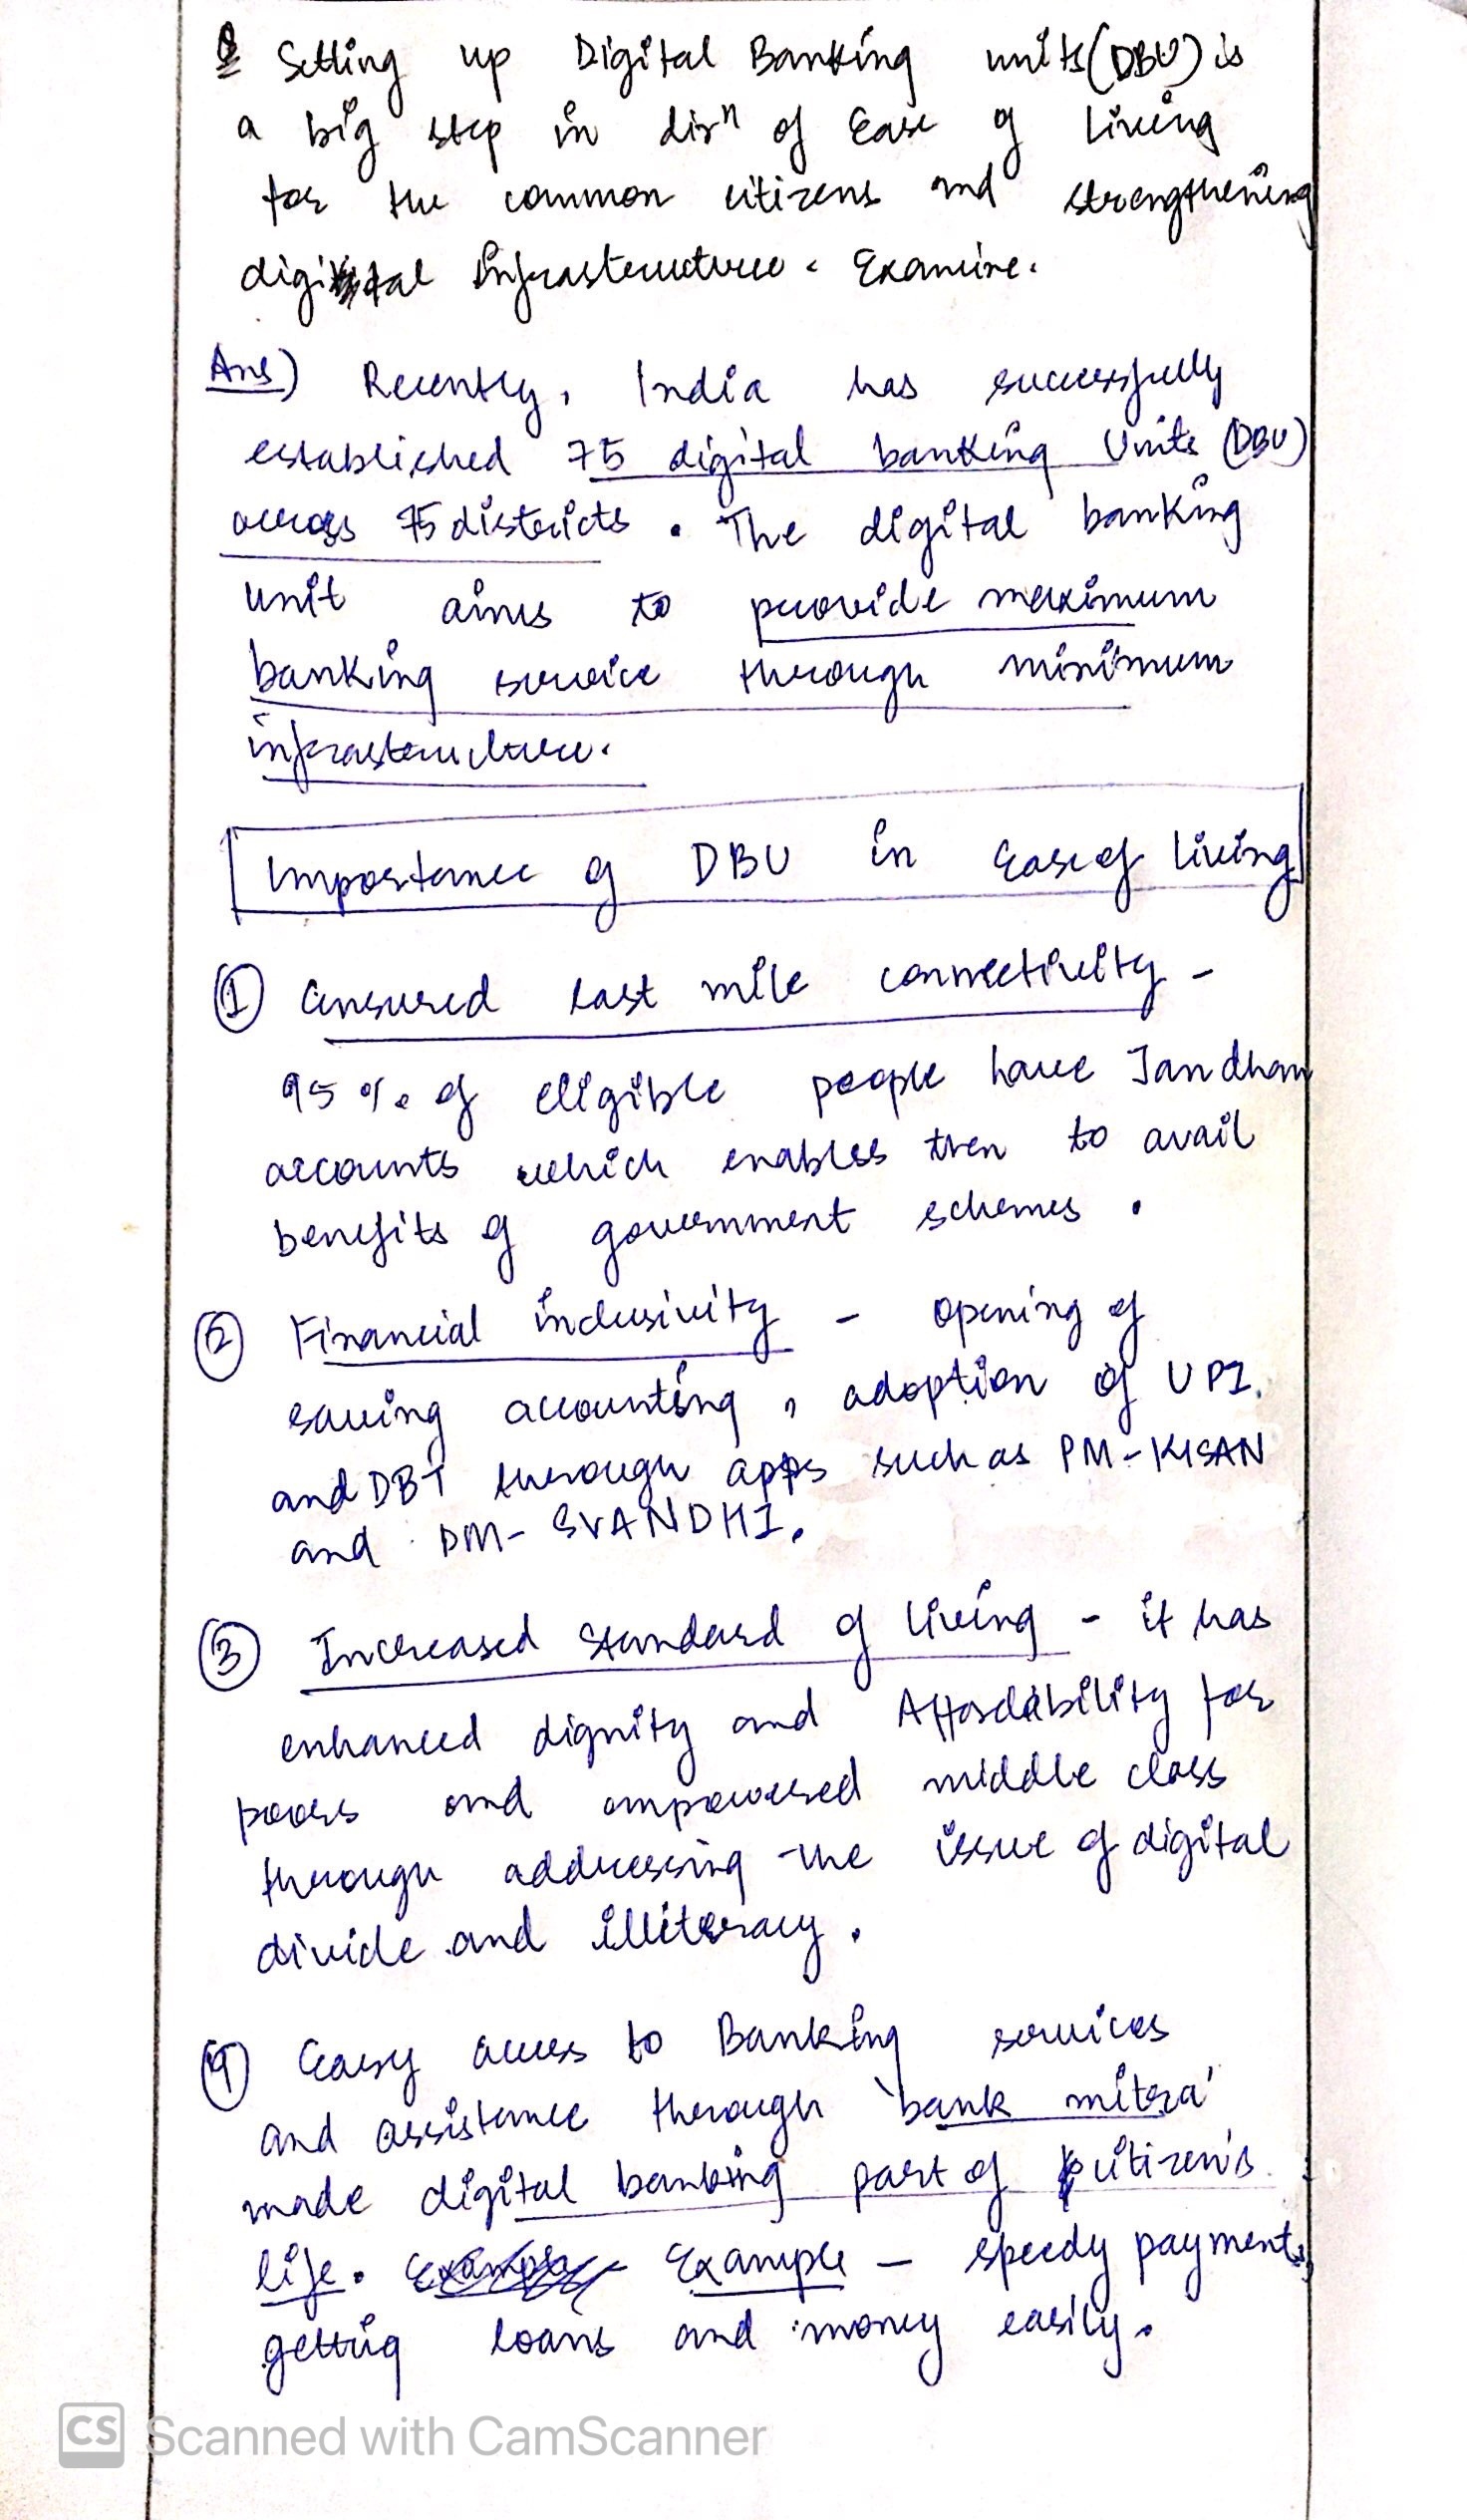 Q Setting up Digital Banking units (DBU) is
a big step in dirn of Ease of Living
for the common citizens and strengthening
digital Infrastructure. Examine.
Ans) Recently, India has successfully
established 75 digital banking Units (DBU)
across 75 districts. The digital banking
unit aims to provide maximum
banking service through minimum
infrastructure.
Importance of DBU in Ease of Living
① Ensured last mile connectivity -
95% of eligible people have Jandhan
accounts which enables then to avail
benefits of government schemes.
② Financial inclusivity - opening of
saving accounting, adoption of UPI,
and DBT through apps such as PM-KISAN
and PM-SVANDHI.
③ Increased Standard of living - it has
enhanced dignity and Affordability for
poors and empowered middle class
through addressing the issue of digital
divide and illiteracy.
④ Easy access to Banking services
and assistance through 'bank mitra'
made digital banking part of citizen's
life. Example - speedy payments,
getting loans and money easily.
CS Scanned with CamScanner